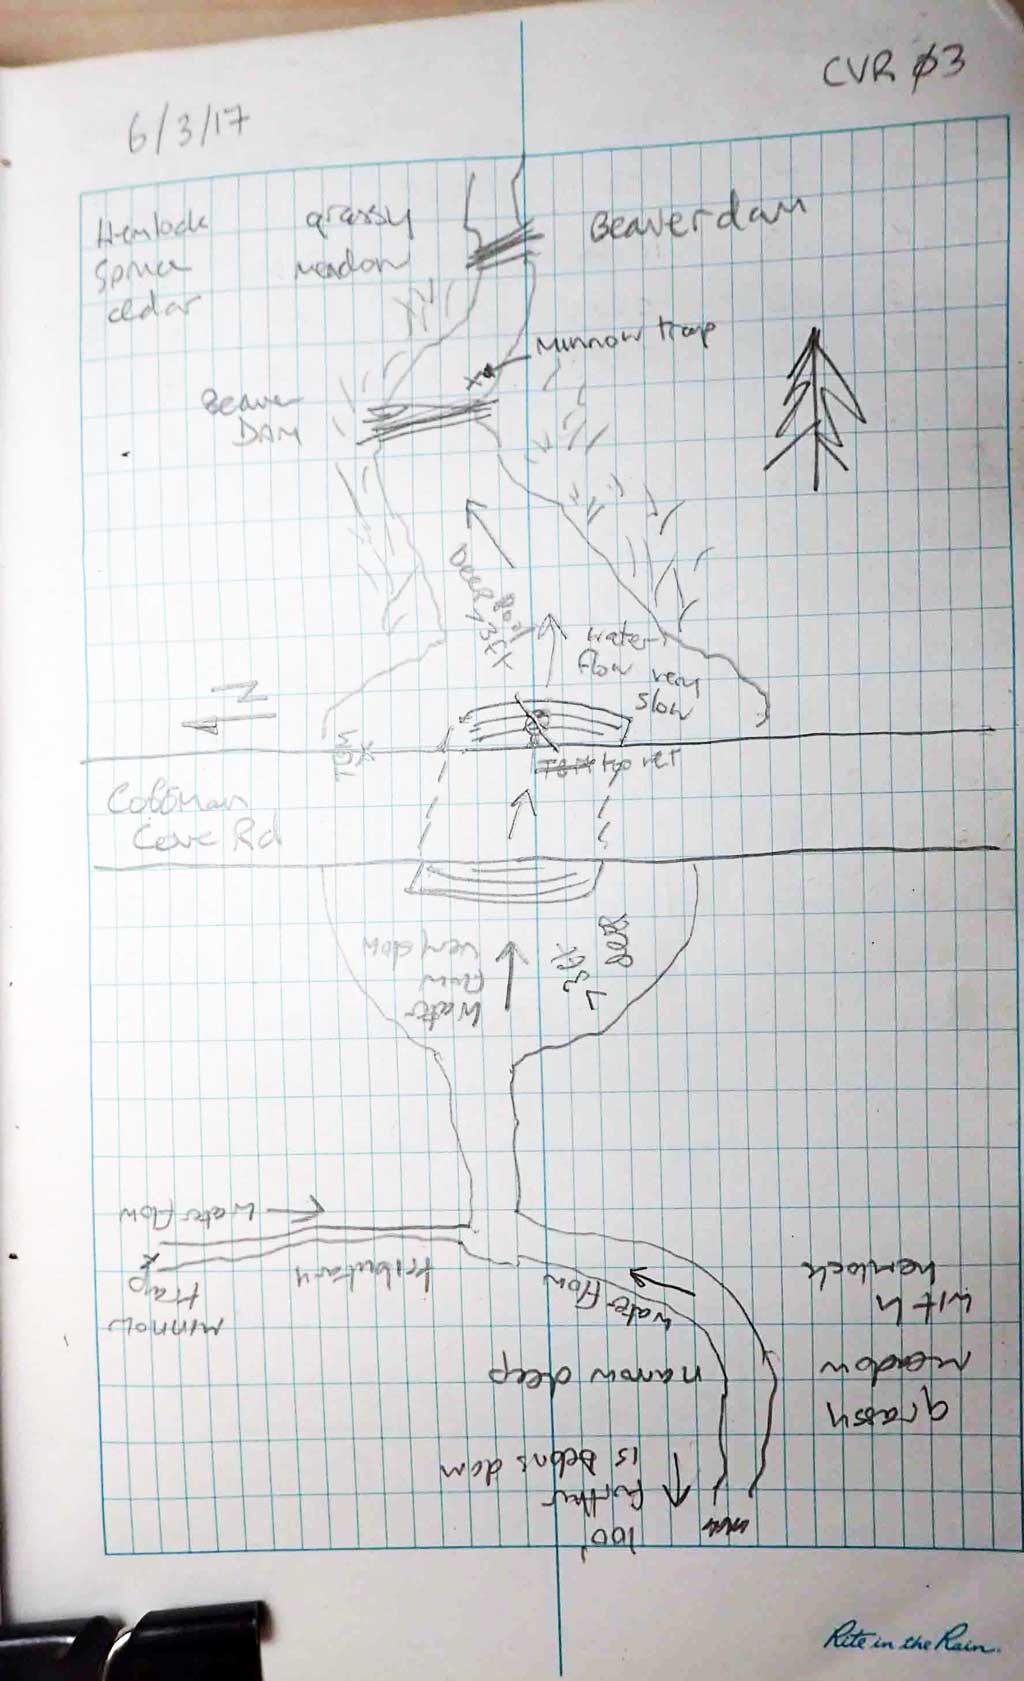 CVR Ø3
6/3/17
Hemlock
spruce
cedar
grassy
meadow
Beaver dam
Minnow trap
x
Beaver
DAM
Deep Pool
>3ft
water
flow very
slow
N
TBM
to ret
Coffman
Cove Rd
Deep
>3ft
Water
flow
very slow
Water flow
x
minnow
trap
tributary
water flow
narrow deep
grassy
meadow
with
hemlock
100'
further
is debris dam
Rite in the Rain